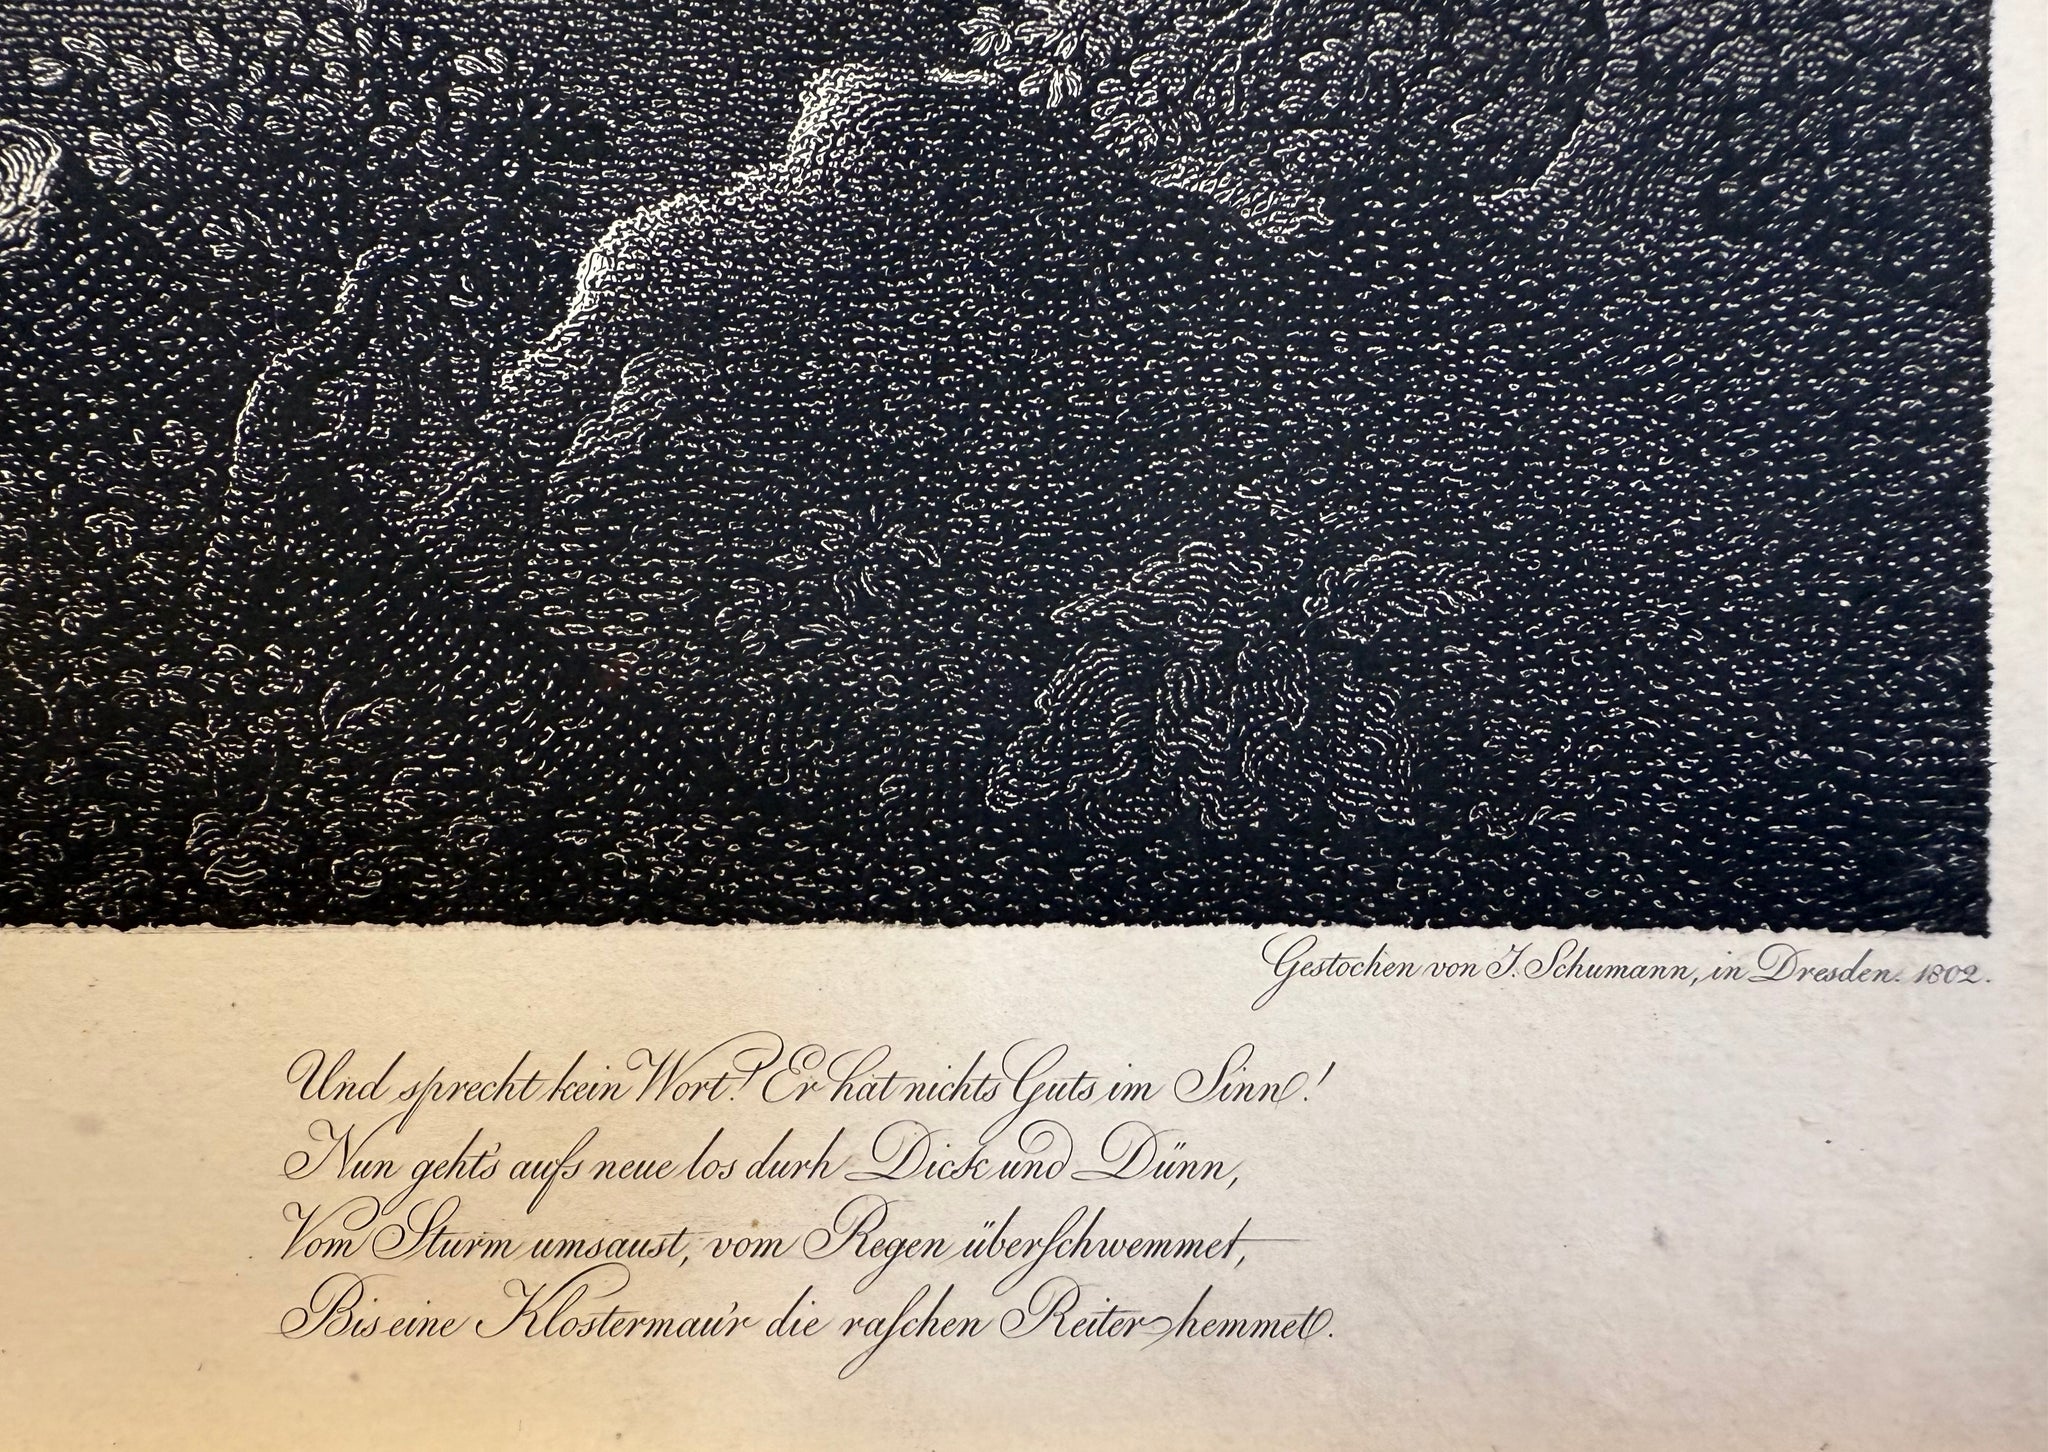 Gestochen von J. Schumann, in Dresden. 1802.
Und sprecht kein Wort! Er hat nichts Guts im Sinn!
Nun geht's aufs neue los durh Dick und Dünn,
Vom Sturm umsaust, vom Regen überschwemmet,
Bis eine Klostermau'r die raschen Reiter hemmet.